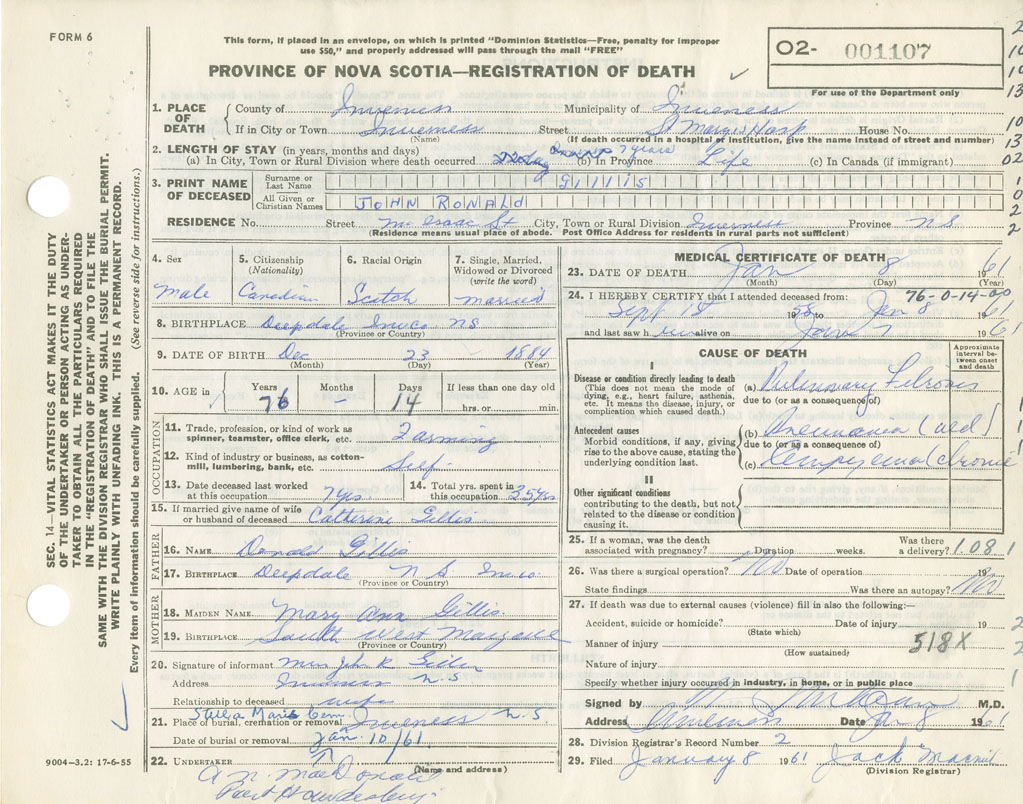 FORM 6
This form, if placed in an envelope, on which is printed "Dominion Statistics—Free, penalty for improper
use $50," and properly addressed will pass through the mail "FREE"
PROVINCE OF NOVA SCOTIA—REGISTRATION OF DEATH
O2- 001107
For use of the Department only
SEC. 14—VITAL STATISTICS ACT MAKES IT THE DUTY
OF THE UNDERTAKER OR PERSON ACTING AS UNDER-
TAKER TO OBTAIN ALL THE PARTICULARS REQUIRED
IN THE "REGISTRATION OF DEATH" AND TO FILE THE
SAME WITH THE DIVISION REGISTRAR WHO SHALL ISSUE THE BURIAL PERMIT.
WRITE PLAINLY WITH UNFADING INK. THIS IS A PERMANENT RECORD.
Every item of information should be carefully supplied. (See reverse side for instructions.)
1. PLACE OF DEATH
County of Inverness Municipality of Inverness
If in City or Town Inverness Street St Mary's Hosp House No.
(Name) (If death occurred in a hospital or institution, give the name instead of street and number)
2. LENGTH OF STAY (in years, months and days)
(a) In City, Town or Rural Division where death occurred 7 years (b) In Province Life (c) In Canada (if immigrant)
3. PRINT NAME OF DECEASED
Surname or Last Name Gillis
All Given or Christian Names JOHN RONALD
RESIDENCE No. Street McIsaac St City, Town or Rural Division Inverness Province N S
(Residence means usual place of abode. Post Office Address for residents in rural parts not sufficient)
4. Sex
Male
5. Citizenship
(Nationality)
Canadian
6. Racial Origin
Scotch
7. Single, Married,
Widowed or Divorced
(write the word)
married
8. BIRTHPLACE Deepdale Inv co NS
(Province or Country)
9. DATE OF BIRTH Dec 23 1884
(Month) (Day) (Year)
10. AGE in Years Months Days If less than one day old
76 - 14 hrs. or min.
OCCUPATION
11. Trade, profession, or kind of work as
spinner, teamster, office clerk, etc. Farming
12. Kind of industry or business, as cotton-
mill, lumbering, bank, etc. Self
13. Date deceased last worked
at this occupation 7 yrs
14. Total yrs. spent in
this occupation 35 yrs
15. If married give name of wife
or husband of deceased Catherine Gillis
FATHER
16. NAME Donald Gillis
17. BIRTHPLACE Deepdale N S Inv co
(Province or Country)
MOTHER
18. MAIDEN NAME Mary Ann Gillis
19. BIRTHPLACE South West Margaree
(Province or Country)
20. Signature of informant Mrs John R Gillis
Address Inverness N.S
Relationship to deceased wife
Stella Maris Cem
21. Place of burial, cremation or removal Inverness N.S.
Date of burial or removal Jan. 10/61.
22. UNDERTAKER
(Name and address)
MacDonald
Port Hawkesbury
9004—3.2: 17-6-55
MEDICAL CERTIFICATE OF DEATH
23. DATE OF DEATH Jan 8 1961
(Month) (Day) (Year)
24. I HEREBY CERTIFY that I attended deceased from: 76-0-14-00
Sept 1st 1958 to Jan 8 1961
and last saw h alive on Jan 7 1961
CAUSE OF DEATH
Approximate
interval be-
tween onset
and death
I
Disease or condition directly leading to death
(This does not mean the mode of
dying, e.g., heart failure, asthenia,
etc. It means the disease, injury, or
complication which caused death.)
(a) Pulmonary Fibrosis
due to (or as a consequence of)
Antecedent causes
Morbid conditions, if any, giving
rise to the above cause, stating the
underlying condition last.
(b) Pneumonia (old)
due to (or as a consequence of)
(c) Empyema (chronic
II
Other significant conditions
contributing to the death, but not
related to the disease or condition
causing it.
25. If a woman, was the death
associated with pregnancy? Duration weeks. Was there
a delivery? 1.08 1
26. Was there a surgical operation? No Date of operation 19
State findings Was there an autopsy? No
27. If death was due to external causes (violence) fill in also the following:—
Accident, suicide or homicide? Date of injury 19
(State which)
Manner of injury 518X
(How sustained)
Nature of injury
Specify whether injury occurred in industry, in home, or in public place
Signed by M.D.
Address Inverness Date Jan 8 1961
28. Division Registrar's Record Number 2
29. Filed January 8 1961 Jack
(Division Registrar)